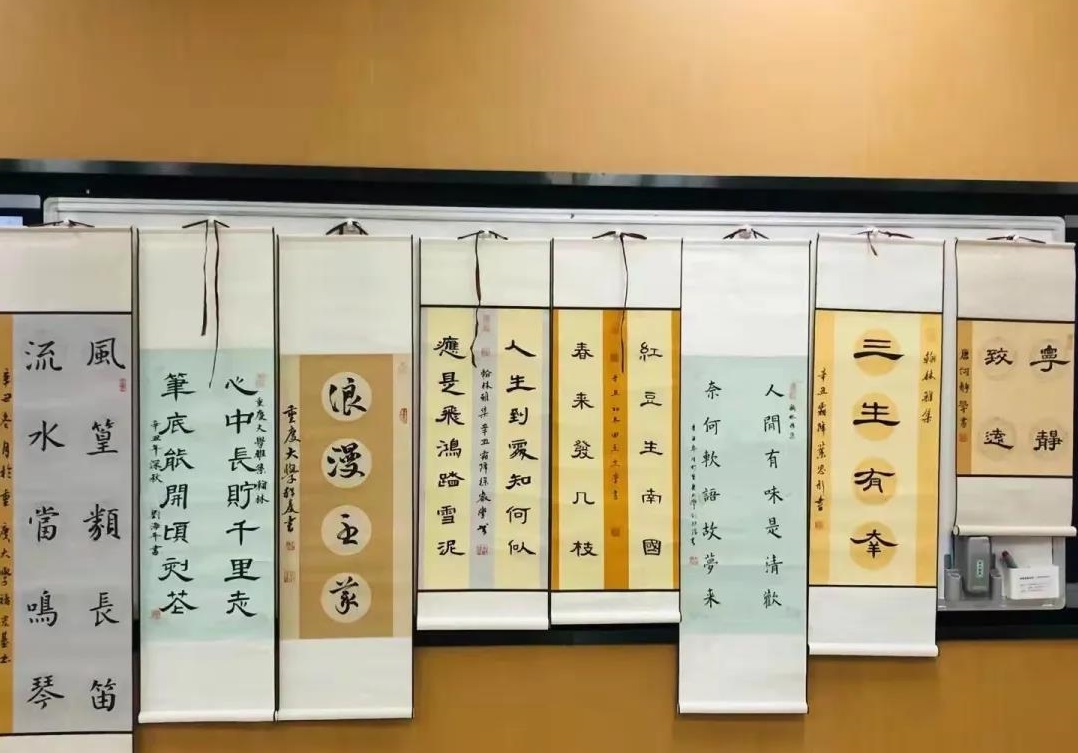 寧靜
致遠
翰林雅集
三生有幸
辛丑霜降
人間有味是清歡
奈何軟語故夢来
紅豆生南國
春来發几枝
人生到處知何似
翰林雅集辛丑霜降徐
應是飛鴻踏雪泥
浪漫主義
重慶大學
心中長貯千里志
重慶大學雅集翰林
筆底能開頃刻花
辛丑年深秋
風篁類長笛
流水當鳴琴
辛丑冬月於重慶大學